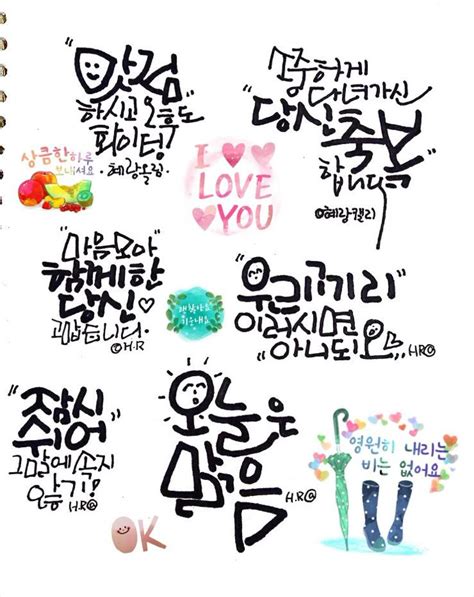 "맛점"
하시고 오후도
화이팅!
·혜랑올림·
"소중하게
다녀가신
당신 축복"
합니다
©혜랑캘리
상큼한 하루
보내셔요
I
LOVE
YOU
"마음모아
함께한
당신"
고맙습니다.
©H.R
행복하세요
"우리끼리"
이러시면
아니되오..
H.R@
"잠시
쉬어"
그말에 속지
않기!
H.R@
오늘은
맑음
H.R@
영원히 내리는
비는 없어요
OK